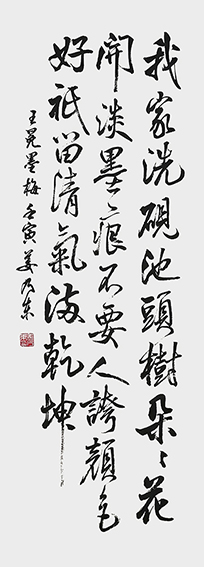 我家洗硯池頭樹朵〻花
開淡墨痕不要人誇顏色
好祇留清氣滿乾坤
王冕墨梅壬寅姜乃東